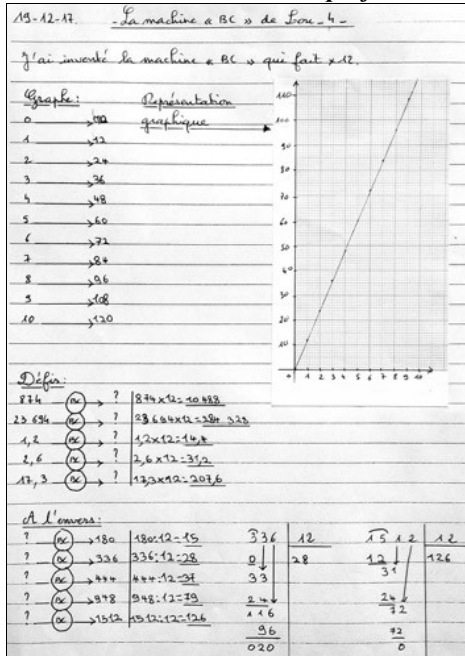 19-12-17. - La machine « BC » de Lou - 4 -
J'ai inventé la machine « BC » qui fait x12.
Graphe : Représentation
graphique
1 → 12
2 → 24
3 → 36
4 → 48
5 → 60
6 → 72
7 → 84
8 → 96
9 → 108
10 → 120
110
100
90
80
70
60
50
40
30
20
10
0 1 2 3 4 5 6 7 8 9 10
Défis :
874 BC → ? 874x12=10 488
23 694 BC → ? 23 694x12=284 328
1,2 BC → ? 1,2x12=14,4
2,6 BC → ? 2,6x12=31,2
17,3 BC → ? 17,3x12=207,6
A l'envers :
? BC → 180 180:12=15
? BC → 336 336:12=28
? BC → 444 444:12=37
? BC → 948 948:12=79
? BC → 1512 1512:12=126
336 12
0 28
33
24
116
96
020
1512 12
12 126
31
24
72
72
0